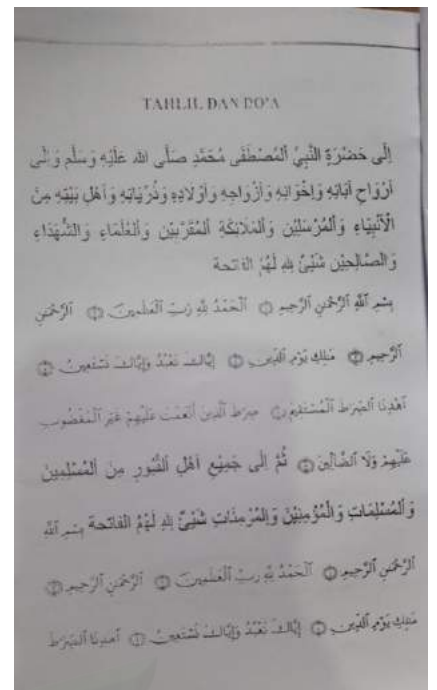 TAHLIL DAN DO'A
إِلَى حَضْرَةِ النَّبِيِّ الْمُصْطَفَى مُحَمَّدٍ صَلَّى اللهُ عَلَيْهِ وَسَلَّم وَإِلَى
أَرْوَاحِ اٰبَائِهِ وَإِخْوَانِهِ وَأَزْوَاجِهِ وَأَوْلَادِهِ وَذُرِّيَاتِهِ وَأَهْلِ بَيْتِهِ مِنَ
الْأَنْبِيَاءِ وَالْمُرْسَلِيْنَ وَالْمَلَائِكَةِ الْمُقَرَّبِيْنَ وَالْعُلَمَاءِ وَالشُّهَدَاءِ
وَالصَّالِحِيْنَ شَيْئٌ لِلهِ لَهُمُ الفاتحة
بِسْمِ ٱللَّهِ ٱلرَّحْمَٰنِ ٱلرَّحِيمِ ۝١ ٱلْحَمْدُ لِلَّهِ رَبِّ ٱلْعَٰلَمِينَ ۝٢ ٱلرَّحْمَٰنِ
ٱلرَّحِيمِ ۝٣ مَٰلِكِ يَوْمِ ٱلدِّينِ ۝٤ إِيَّاكَ نَعْبُدُ وَإِيَّاكَ نَسْتَعِينُ ۝٥
ٱهْدِنَا ٱلصِّرَٰطَ ٱلْمُسْتَقِيمَ ۝٦ صِرَٰطَ ٱلَّذِينَ أَنْعَمْتَ عَلَيْهِمْ غَيْرِ ٱلْمَغْضُوبِ
عَلَيْهِمْ وَلَا ٱلضَّآلِّينَ ۝٧ ثُمَّ إِلَى جَمِيْعِ أَهْلِ الْقُبُورِ مِنَ الْمُسْلِمِيْنَ
وَالْمُسْلِمَاتِ وَالْمُؤْمِنِيْنَ وَالْمُؤْمِنَاتِ شَيْئٌ لِلهِ لَهُمُ الفاتحة بِسْمِ ٱللَّهِ
ٱلرَّحْمَٰنِ ٱلرَّحِيمِ ۝١ ٱلْحَمْدُ لِلَّهِ رَبِّ ٱلْعَٰلَمِينَ ۝٢ ٱلرَّحْمَٰنِ ٱلرَّحِيمِ ۝٣
مَٰلِكِ يَوْمِ ٱلدِّينِ ۝٤ إِيَّاكَ نَعْبُدُ وَإِيَّاكَ نَسْتَعِينُ ۝٥ ٱهْدِنَا ٱلصِّرَٰطَ